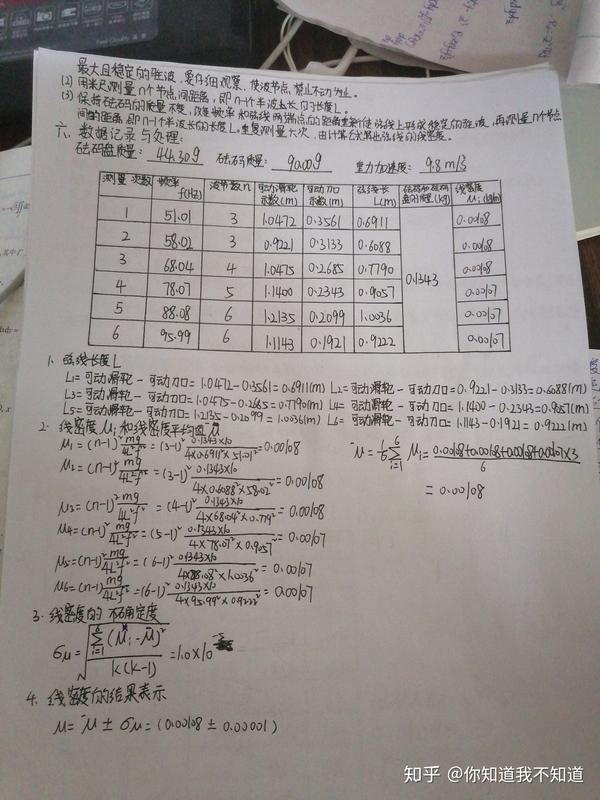 最大且稳定的驻波，要仔细观察，使波节点禁止不动为止。
(2) 用米尺测量n个节点间距离，即n-1个半波长的长度L。
(3) 保持砝码的质量不变，改变频率和弦线两端点的距离重新使弦线上形成稳定的驻波，再测量n个节点
间的距离，即n-1个半波长的长度L。重复测量六次，由计算公式算出弦线的线密度。
六、数据记录与处理：
砝码盘质量：44.30g 砝码质量：90.00g 重力加速度：9.8m/s²
测量次数 频率f(Hz) 波节数n 可动滑轮示数(m) 可动刀口示数(m) 弦线长L(m) 砝码和砝码盘的质量(kg) 线密度μi(kg/m)
1 51.01 3 1.0472 0.3561 0.6911 0.1343 0.00108
2 58.02 3 0.9221 0.3133 0.6088 0.00108
3 68.04 4 1.0475 0.2685 0.7790 0.00108
4 78.07 5 1.1400 0.2343 0.9057 0.00107
5 88.08 6 1.2135 0.2099 1.0036 0.00107
6 95.99 6 1.1143 0.1921 0.9222 0.00107
1. 弦线长度L
L1=可动滑轮-可动刀口=1.0472-0.3561=0.6911(m) L2=可动滑轮-可动刀口=0.9221-0.3133=0.6088(m)
L3=可动滑轮-可动刀口=1.0475-0.2685=0.7790(m) L4=可动滑轮-可动刀口=1.1400-0.2343=0.9057(m)
L5=可动滑轮-可动刀口=1.2135-0.2099=1.0036(m) L6=可动滑轮-可动刀口=1.1143-0.1921=0.9222(m)
2. 线密度μi和线密度平均值μ̄
μ1=(n-1)²mg/4L²f²=(3-1)²0.1343×10/4×0.6911²×51.01²=0.00108
μ̄=1/6∑μi=0.00108+0.00108+0.00108+0.00107×3/6
=0.00108
μ2=(n-1)²mg/4L²f²=(3-1)²0.1343×10/4×0.6088²×58.02²=0.00108
μ3=(n-1)²mg/4L²f²=(4-1)²0.1343×10/4×68.04²×0.779²=0.00108
μ4=(n-1)²mg/4L²f²=(5-1)²0.1343×10/4×78.07²×0.9057²=0.00107
μ5=(n-1)²mg/4L²f²=(6-1)²0.1343×10/4×88.08²×1.0036²=0.00107
μ6=(n-1)²mg/4L²f²=(6-1)²0.1343×10/4×95.99²×0.9222²=0.00107
3. 线密度的不确定度
σμ=√∑(μi-μ̄)²/k(k-1)=1.0×10⁻⁵
4. 线密度的结果表示
μ=μ̄±σμ=(0.00108±0.00001)
知乎 @你知道我不知道